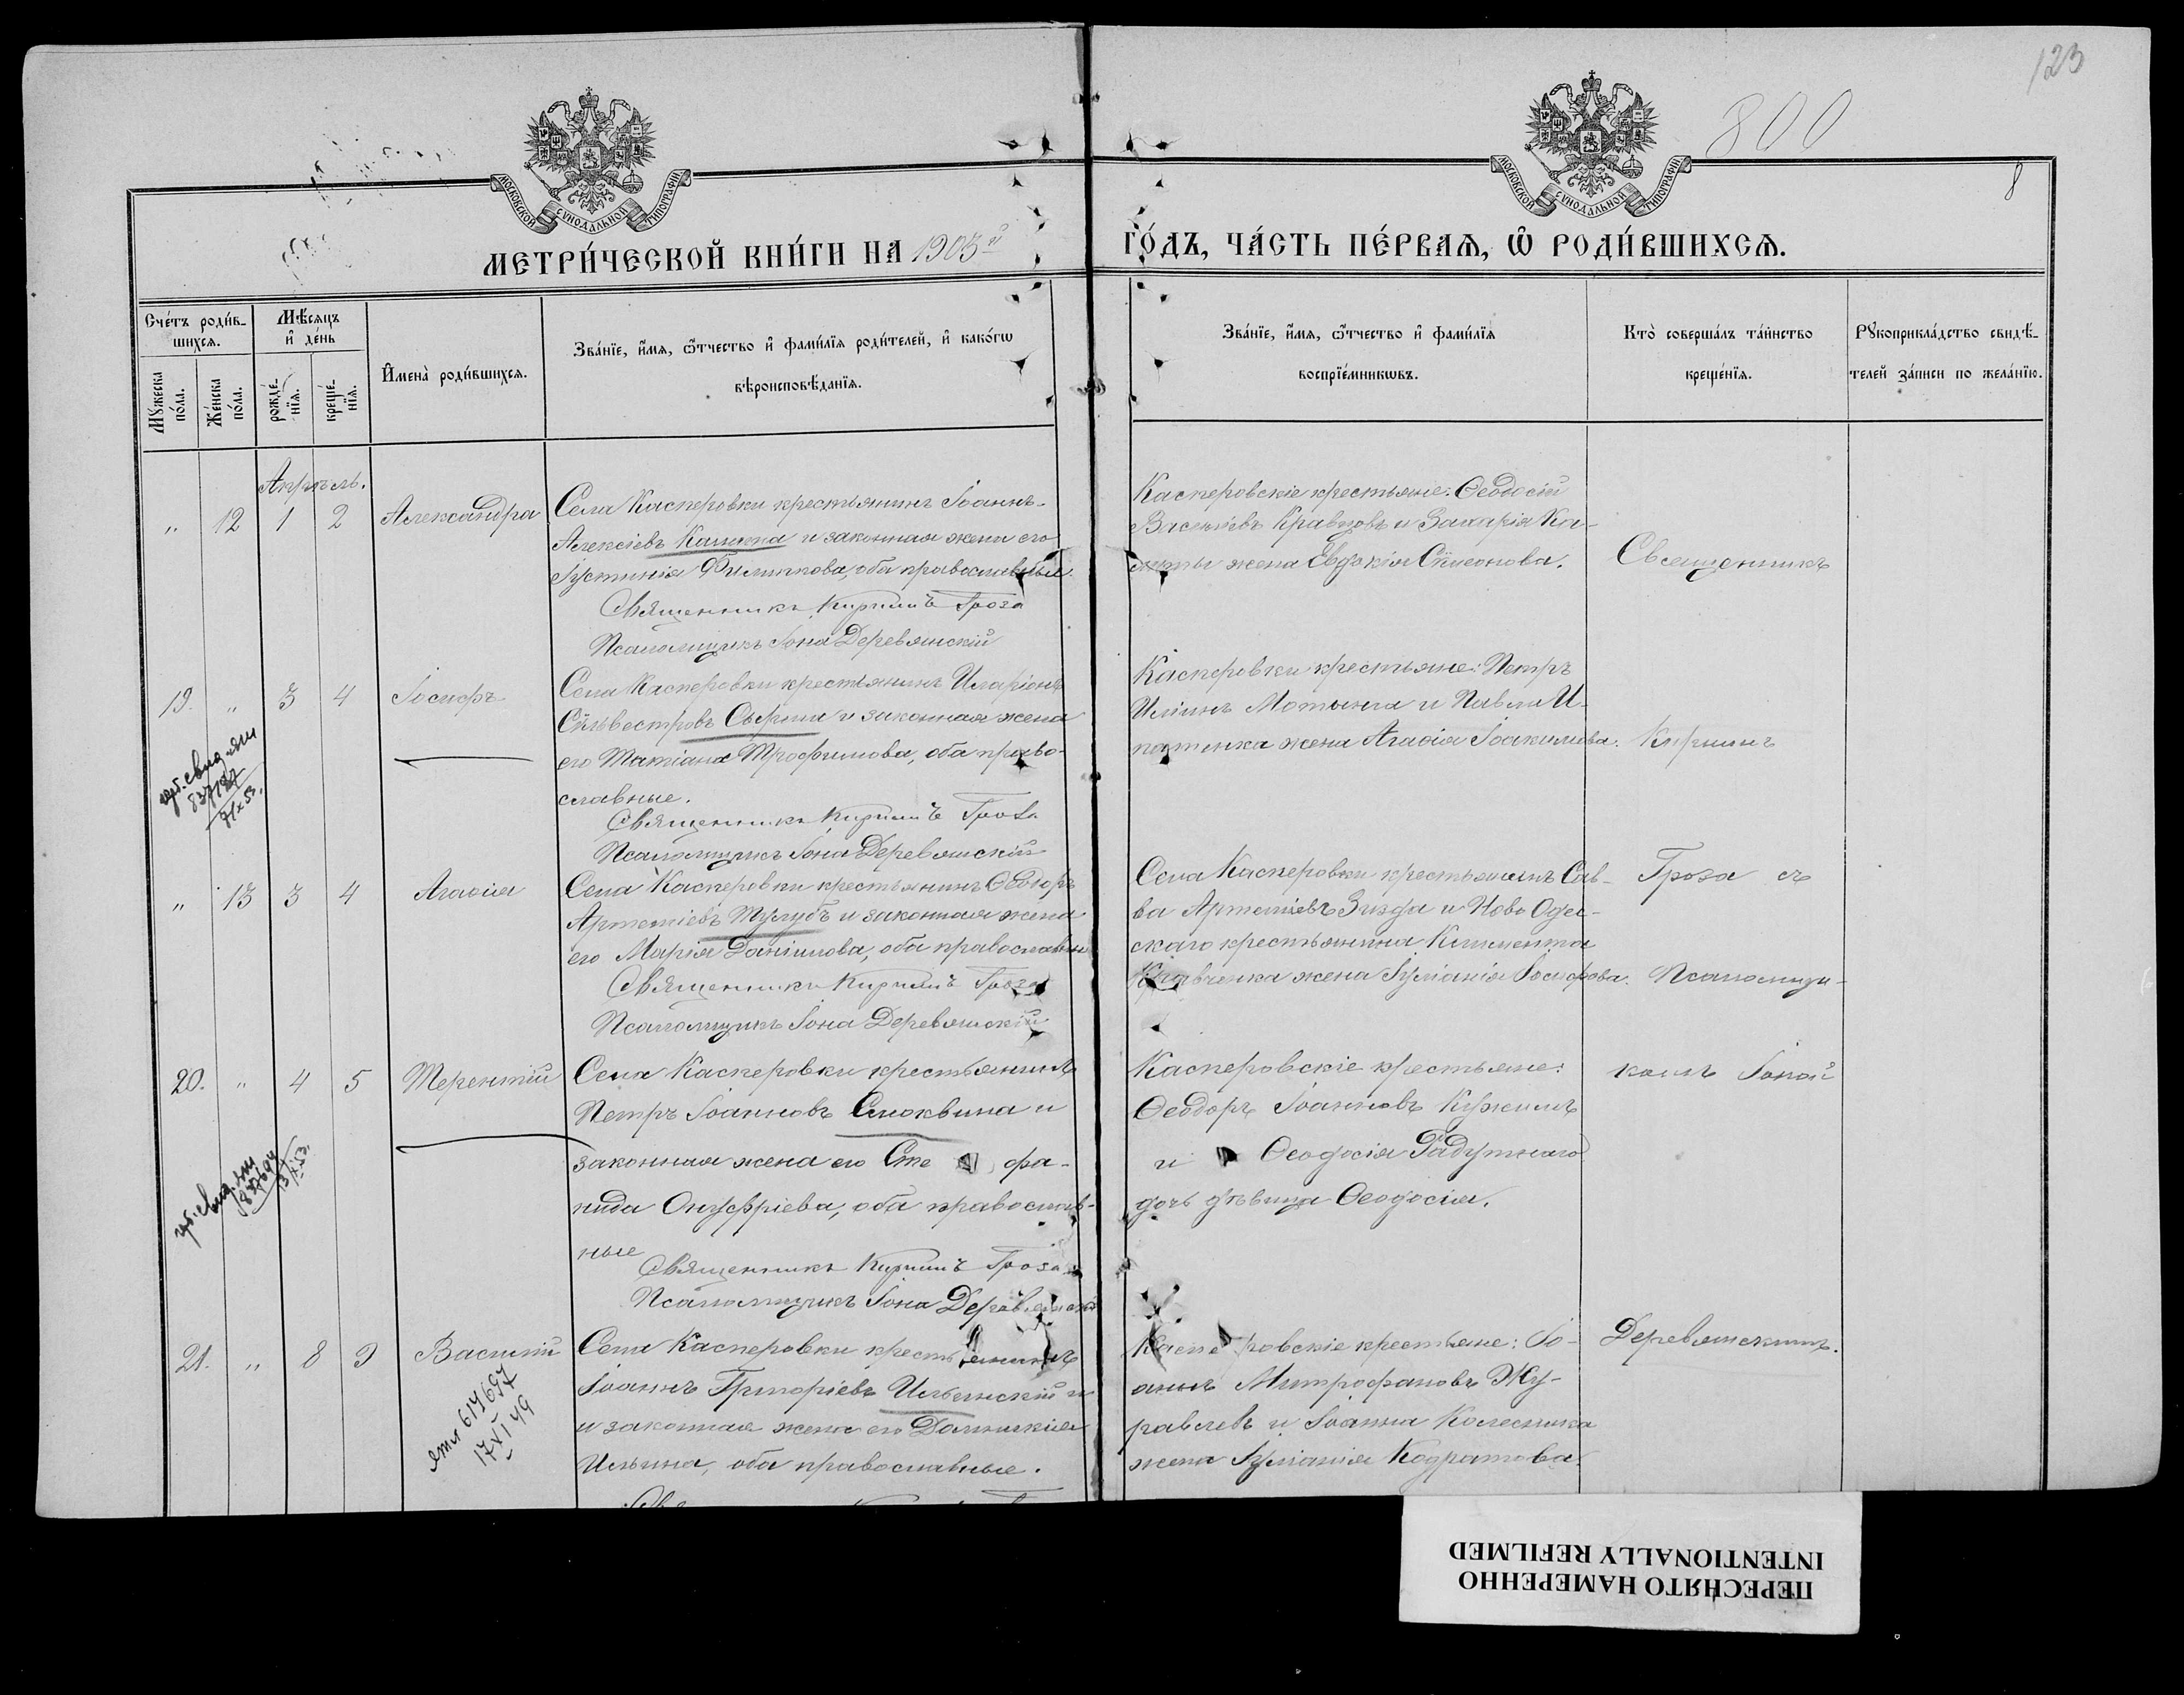 123
800
8
МОСКОВСКОЙ СѴНОДАЛЬНОЙ ТИПОГРАФІИ
МОСКОВСКОЙ СѴНОДАЛЬНОЙ ТИПОГРАФІИ
МЕТРИ́ЧЕСКОЙ КНИ́ГИ НА 1903й ГО́ДЪ, ЧА́СТЬ ПЕ́РВАѦ, Ѡ҆ РОДИ́ВШИХСѦ.
Сче́тъ роди́в-
шихсѧ.
Мꙋ́жеска по́ла.
Же́нска по́ла.
Мѣ́сѧцъ и҆ де́нь
рожде́-нїѧ.
креще́-нїѧ.
И҆мена̀ роди́вшихсѧ.
Зва́нїе, и҆́мѧ, ѻ҆́тчество и҆ фами́лїѧ роди́телей, и҆ како́гѡ
вѣроисповѣ́данїѧ.
Зва́нїе, и҆́мѧ, ѻ҆́тчество и҆ фами́лїѧ
воспрїе́мникѡвъ.
Кто̀ соверша́лъ та́инство
креще́нїѧ.
Рꙋкоприкла́дство свидѣ́-
телей за́писи по жела́нїю.
Апрѣль.
" 12 1 2 Александра
Села Касперовки крестьянинъ Іоаннъ
Алексіевъ Калита и законная жена его
Іустинія Филиппова, оба православные.
Священникъ Кириллъ Гроза
Псаломщикъ Іона Деревянскій
Касперовскіе крестьяне: Ѳеодосій
Васильевъ Кравцовъ и Захарія Ка-
литы жена Евдокія Симеонова.
Священникъ
19. " 3 4 Іосифъ
Села Касперовки крестьянинъ Иларіонъ
Сильвестровъ Сырица и законная жена
его Татіана Трофимова, оба право-
славные.
Священникъ Кириллъ Гроза
Псаломщикъ Іона Деревянскій
Касперовки крестьяне: Петръ
Иліинъ Мотынга и Павла И-
патенка жена Агаѳія Іоакимова.
Кириллъ
" 13 3 4 Агаѳія
Села Касперовки крестьянинъ Ѳеодоръ
Артеміевъ Тулубъ и законная жена
его Марія Даніилова, оба православн
Священникъ Кириллъ Гроза
Псаломщикъ Іона Деревянскій
Села Касперовки крестьянинъ Сав-
ва Артеміевъ Зизда и Ново Одес-
скаго крестьянина Климента
Кравченка жена Іуліанія Іосифова.
Гроза съ
Псаломщи-
20. " 4 5 Терентій
Села Касперовки крестьянинъ
Петръ Іоанновъ Смоквина и
законная жена его Сте фа-
нида Онуфріева, оба православ-
ные
Священникъ Кириллъ Гроза
Псаломщикъ Іона Деревянскій
Касперовскіе крестьяне:
Ѳеодоръ Іоанновъ Кужимъ
и Ѳеодосія Гадутнаго
дочь дѣвица Ѳеодосія.
комъ Іоной
21. " 8 9 Василій
614697
17 XI 49
Села Касперовки крестьянинъ
Іоаннъ Григоріевъ Ильинскій и
и законная жена его Домникія
Ильина, оба православные.
Касперовскіе крестьяне: Іо-
аннъ Митрофановъ Жу-
равлевъ и Іоанна Колесника
жена Іуліанія Кодратова.
Деревянскимъ.
ПЕРЕСНЯТО НАМЕРЕННО
INTENTIONALLY REFILMED